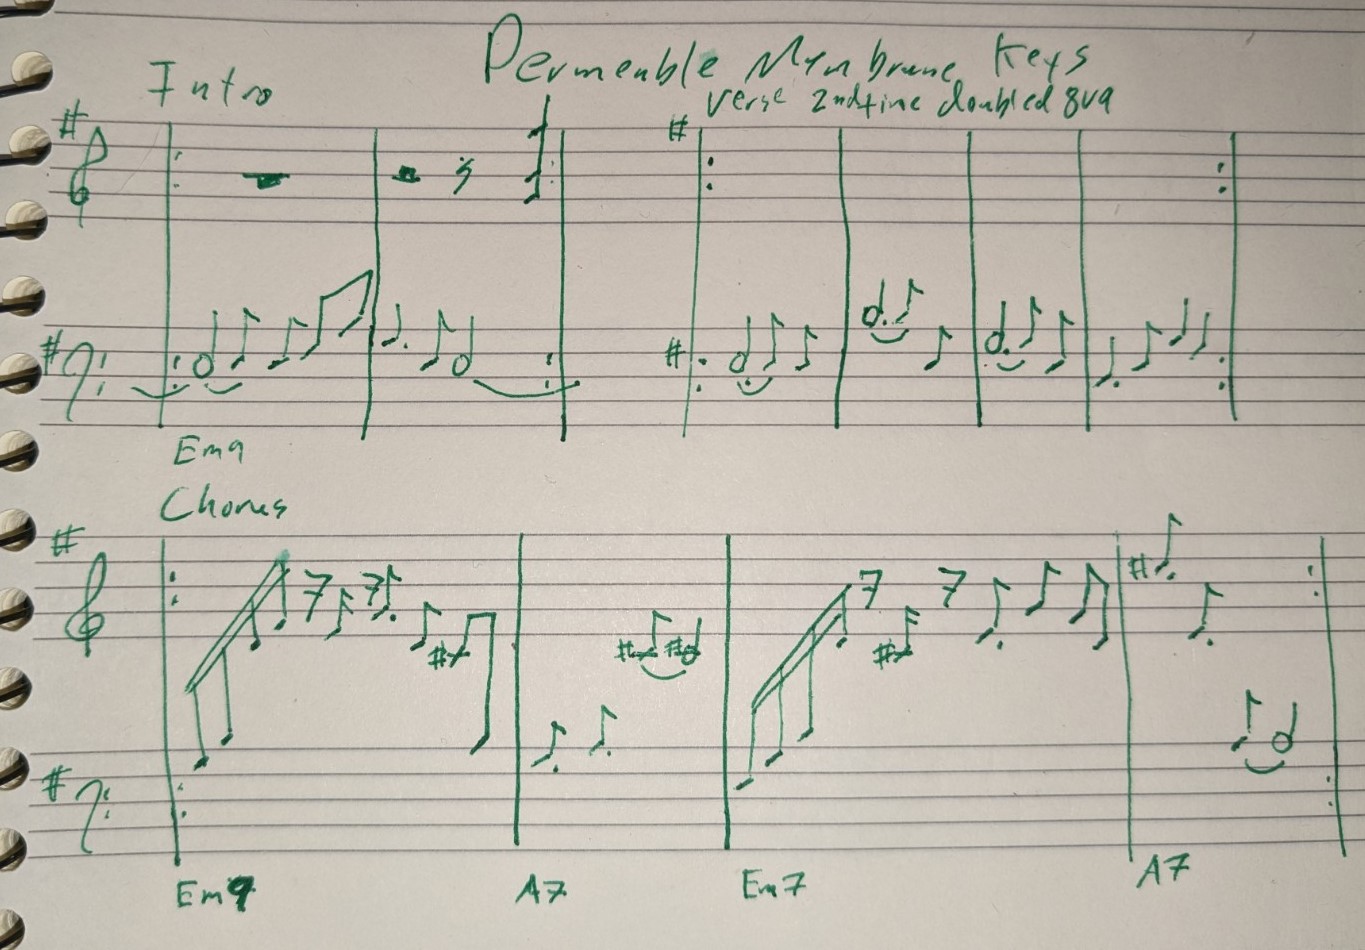 Permeable Membrane Keys
Intro
verse 2nd time doubled 8va
Em9
Chorus
Em9
A7
Em7
A7